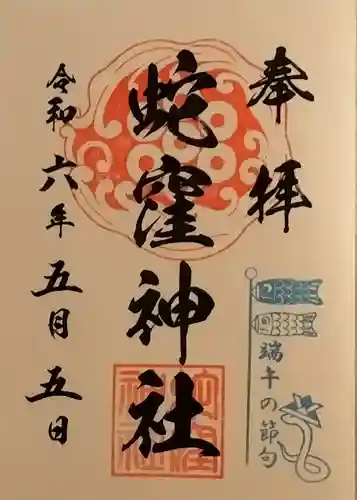 奉拝
蛇窪神社
令和六年五月五日
端午の節句